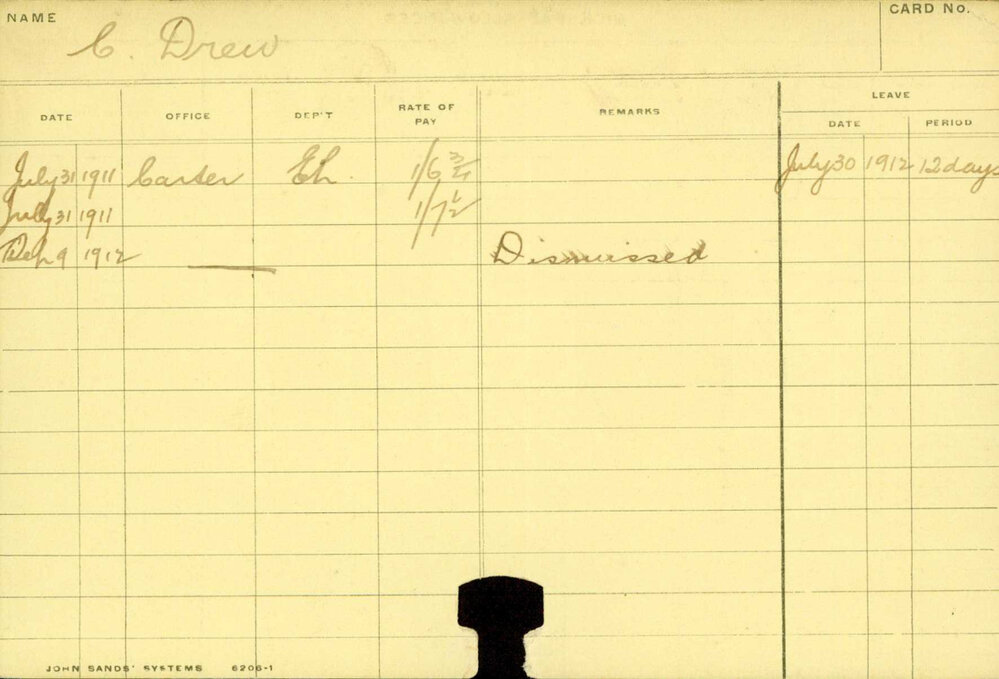 NAME C. Drew CARD No.
LEAVE
DATE OFFICE DEP'T RATE OF PAY REMARKS DATE PERIOD
July 31 1911 Carter Eh. 1/6 3/4 July 30 1912 12 days
July 31 1911 1/7 1/2
Feb 9 1912 Dismissed
JOHN SANDS' SYSTEMS 6206-1